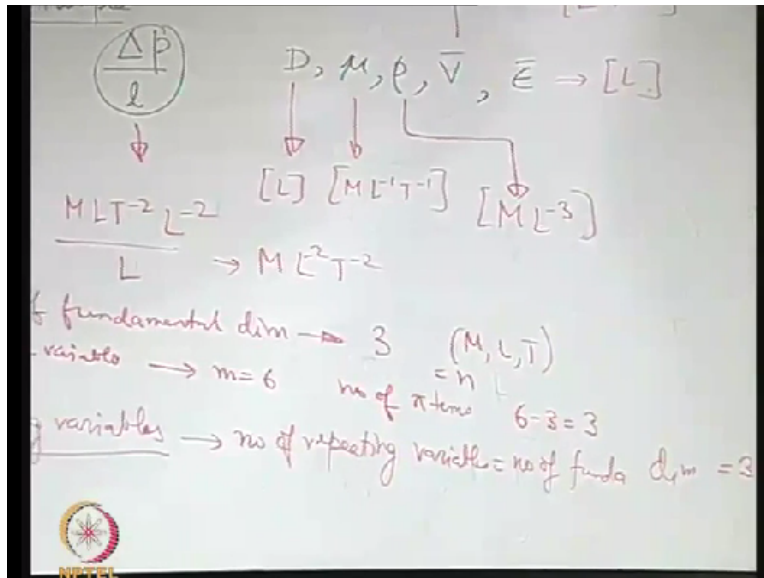 Δp
l
D, μ, ρ, V̄, ε̄ → [L]
[L] [ML⁻¹T⁻¹] [ML⁻³]
MLT⁻² L⁻²
L → ML⁻²T⁻²
f fundamental dim → 3 (M, L, T)
variable → m=6 = n
no of π terms 6-3=3
g variables → no of repeating variable = no of funda dim = 3
NPTEL